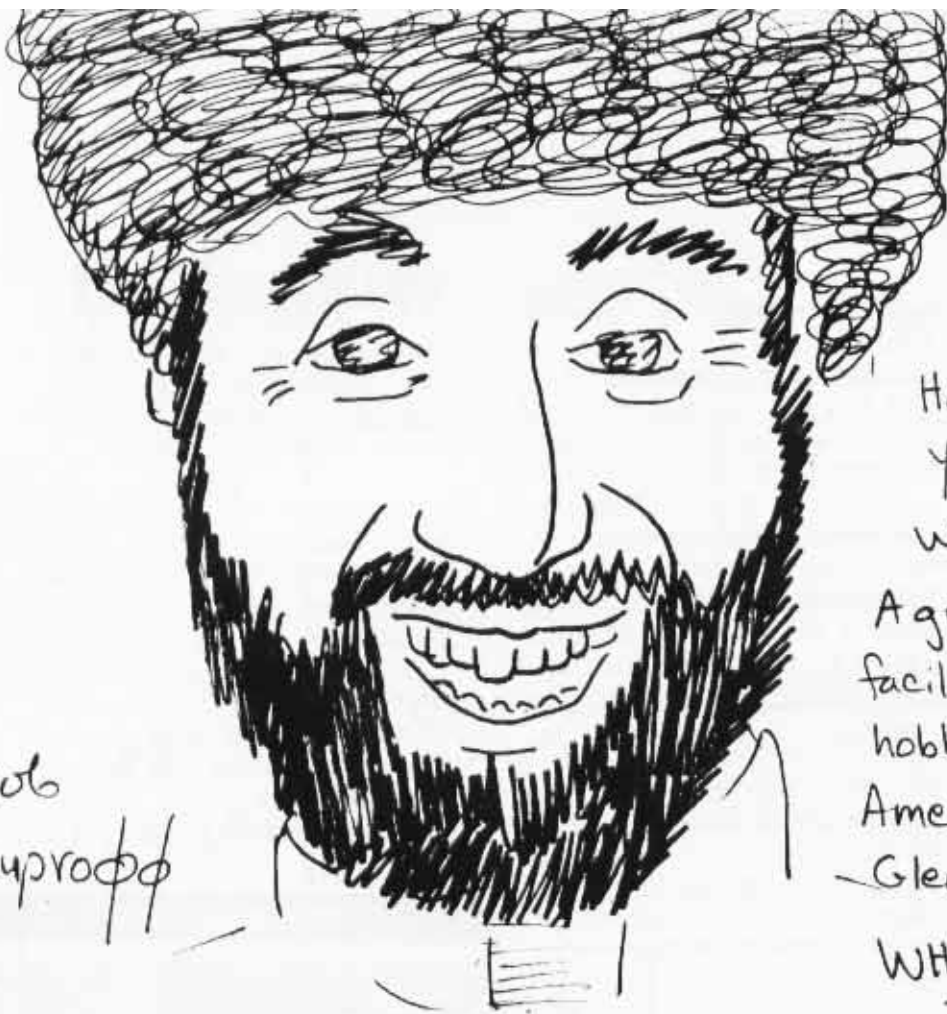 ob
uproϕϕ
H
Y
W
Ag
facil
hobb
Ame
Gle
WH